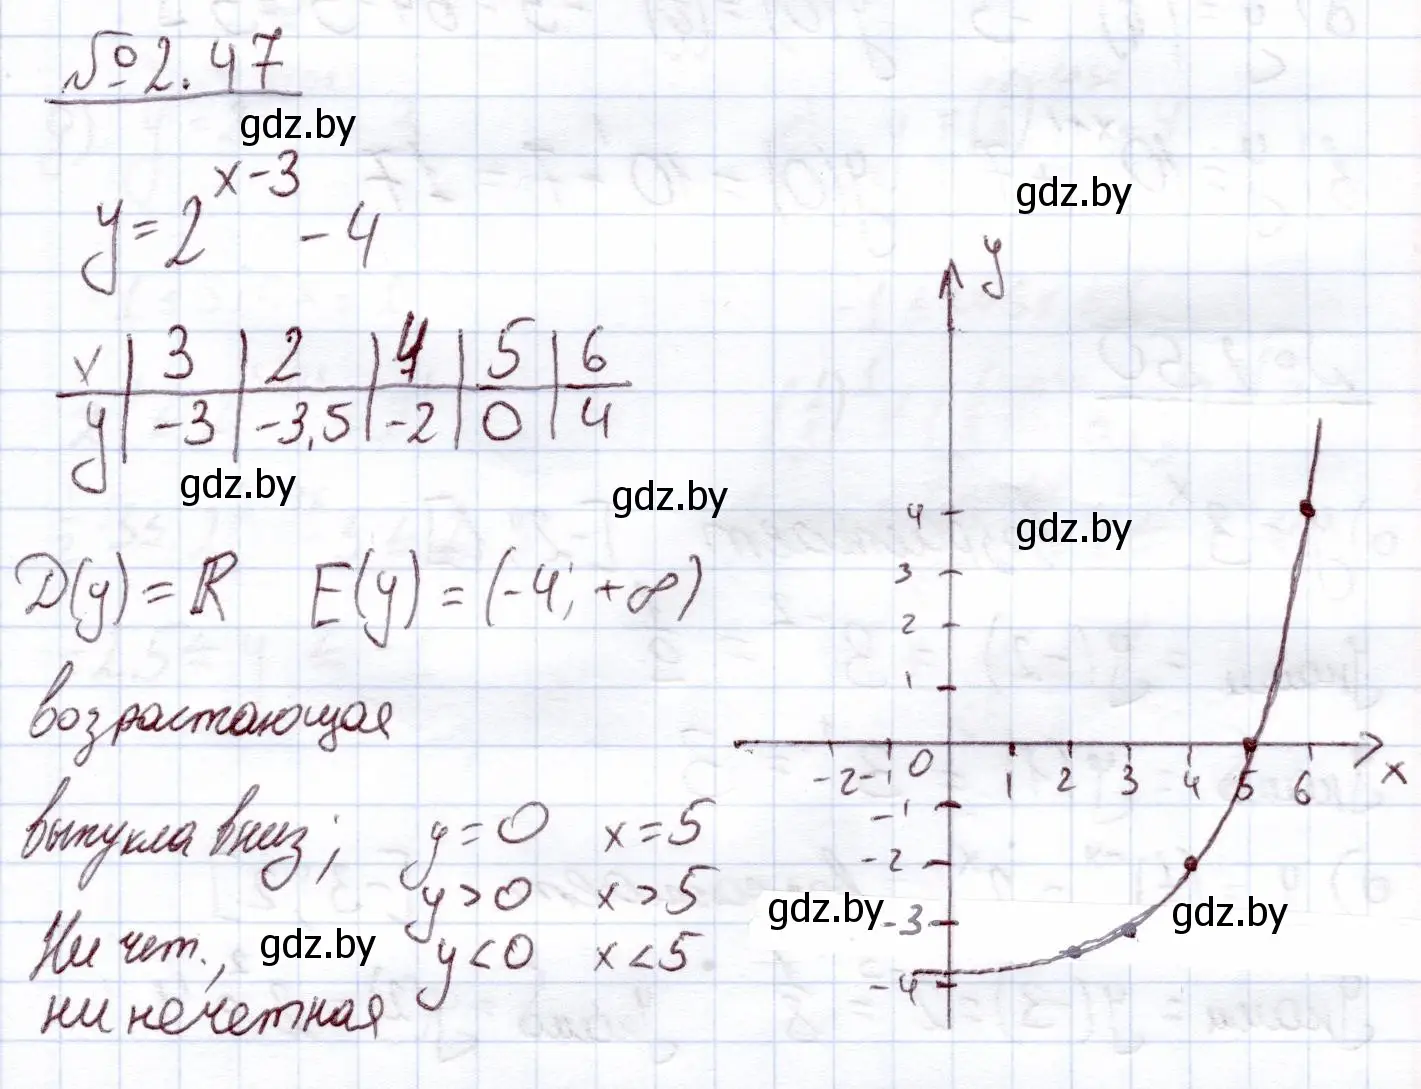 № 2.47
gdz.by
y = 2^(x-3) - 4
gdz.by
x | 3 | 2 | 4 | 5 | 6
y | -3 | -3,5 | -2 | 0 | 4
gdz.by
gdz.by
gdz.by
D(y) = ℝ E(y) = (-4; +∞)
возрастающая
выпукла вниз; y = 0 x = 5
y > 0 x > 5
Ни чет., gdz.by y < 0 x < 5
ни нечетная
y
4
3
2
1
-2 -1 0 1 2 3 4 5 6 x
-1
-2
gdz.by
-3
gdz.by
-4